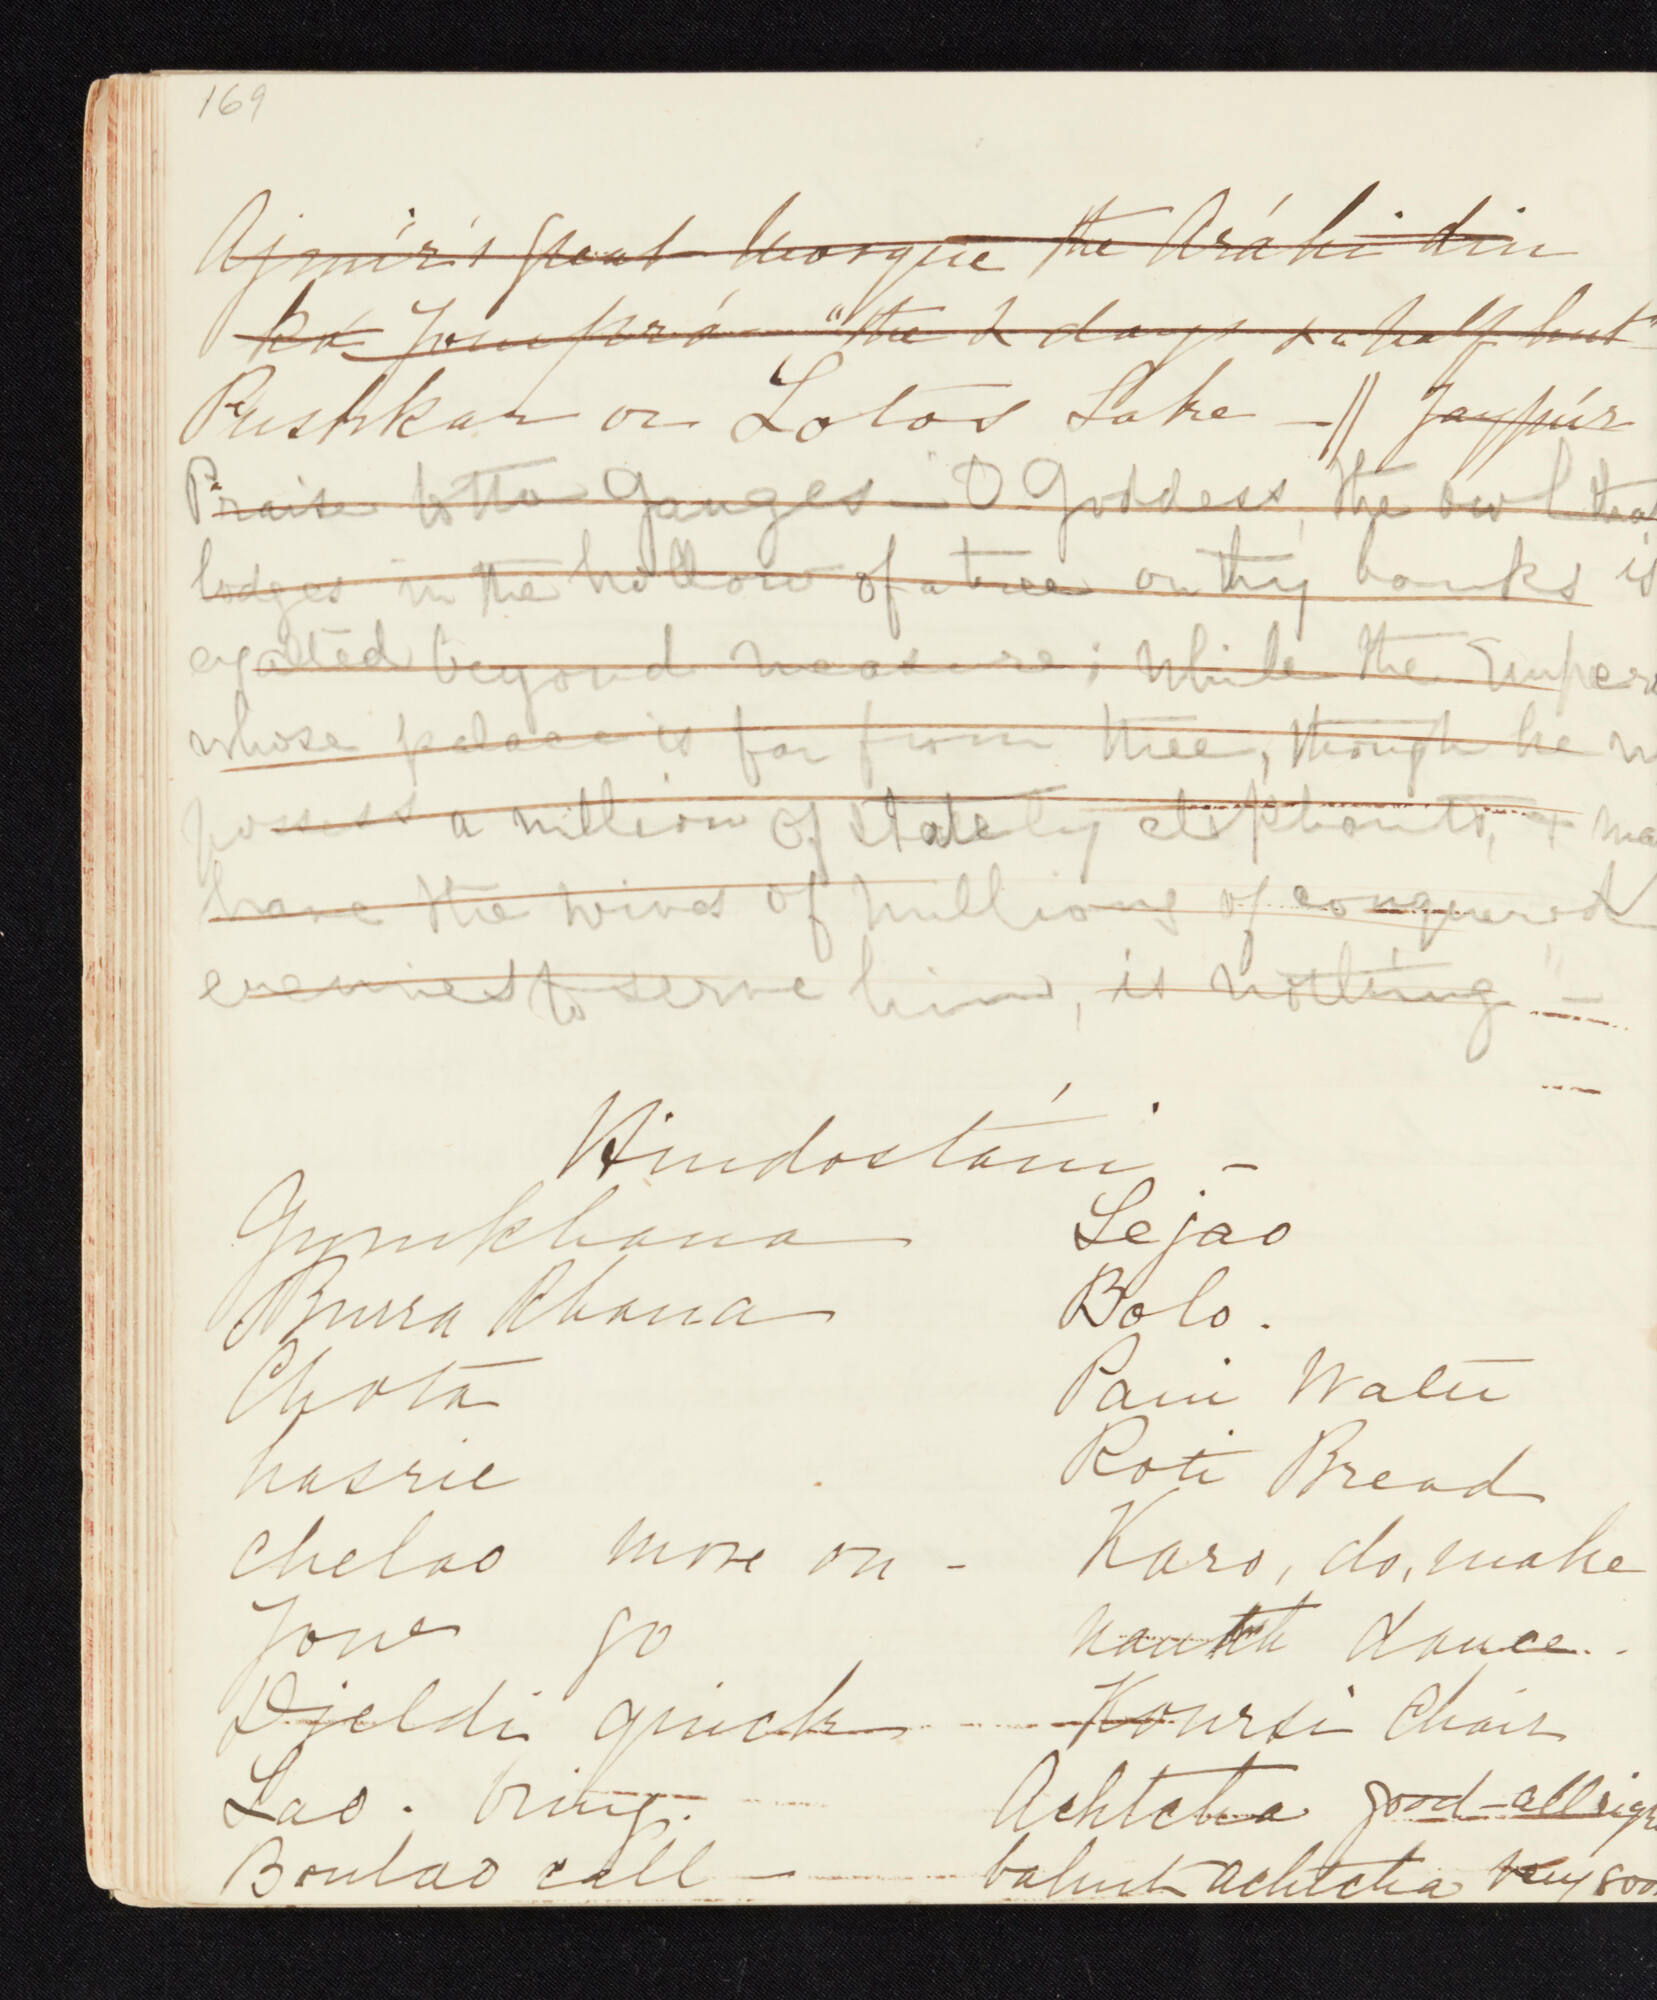 169
Ajmír's great Mosque the Aráhi din
ká Jomprá - "the 2 days & a half hut"
Pushkar or Lotos Lake - || Jaypúr
Praise to the Ganges - "O Goddess, the owl that
lodges in the hollow of a tree on thy banks is
exalted beyond measure; while the Emper
whose palace is far from thee, though he m
possess a million of stately elephants, & may
have the wives of millions of conquered
enemies to serve him, is nothing" -
Hindostáni -
Gymkhana Lejao
Burra Khana Bolo.
Chota Pani Water
hasrie Roti Bread
Chelao move on - Karo, do, make
Jowe go Nautch dance.
Djeldi quick Koursi Chair
Lao. bring. Achtcha good - all righ
Boulao call - bahut achtcha very goo